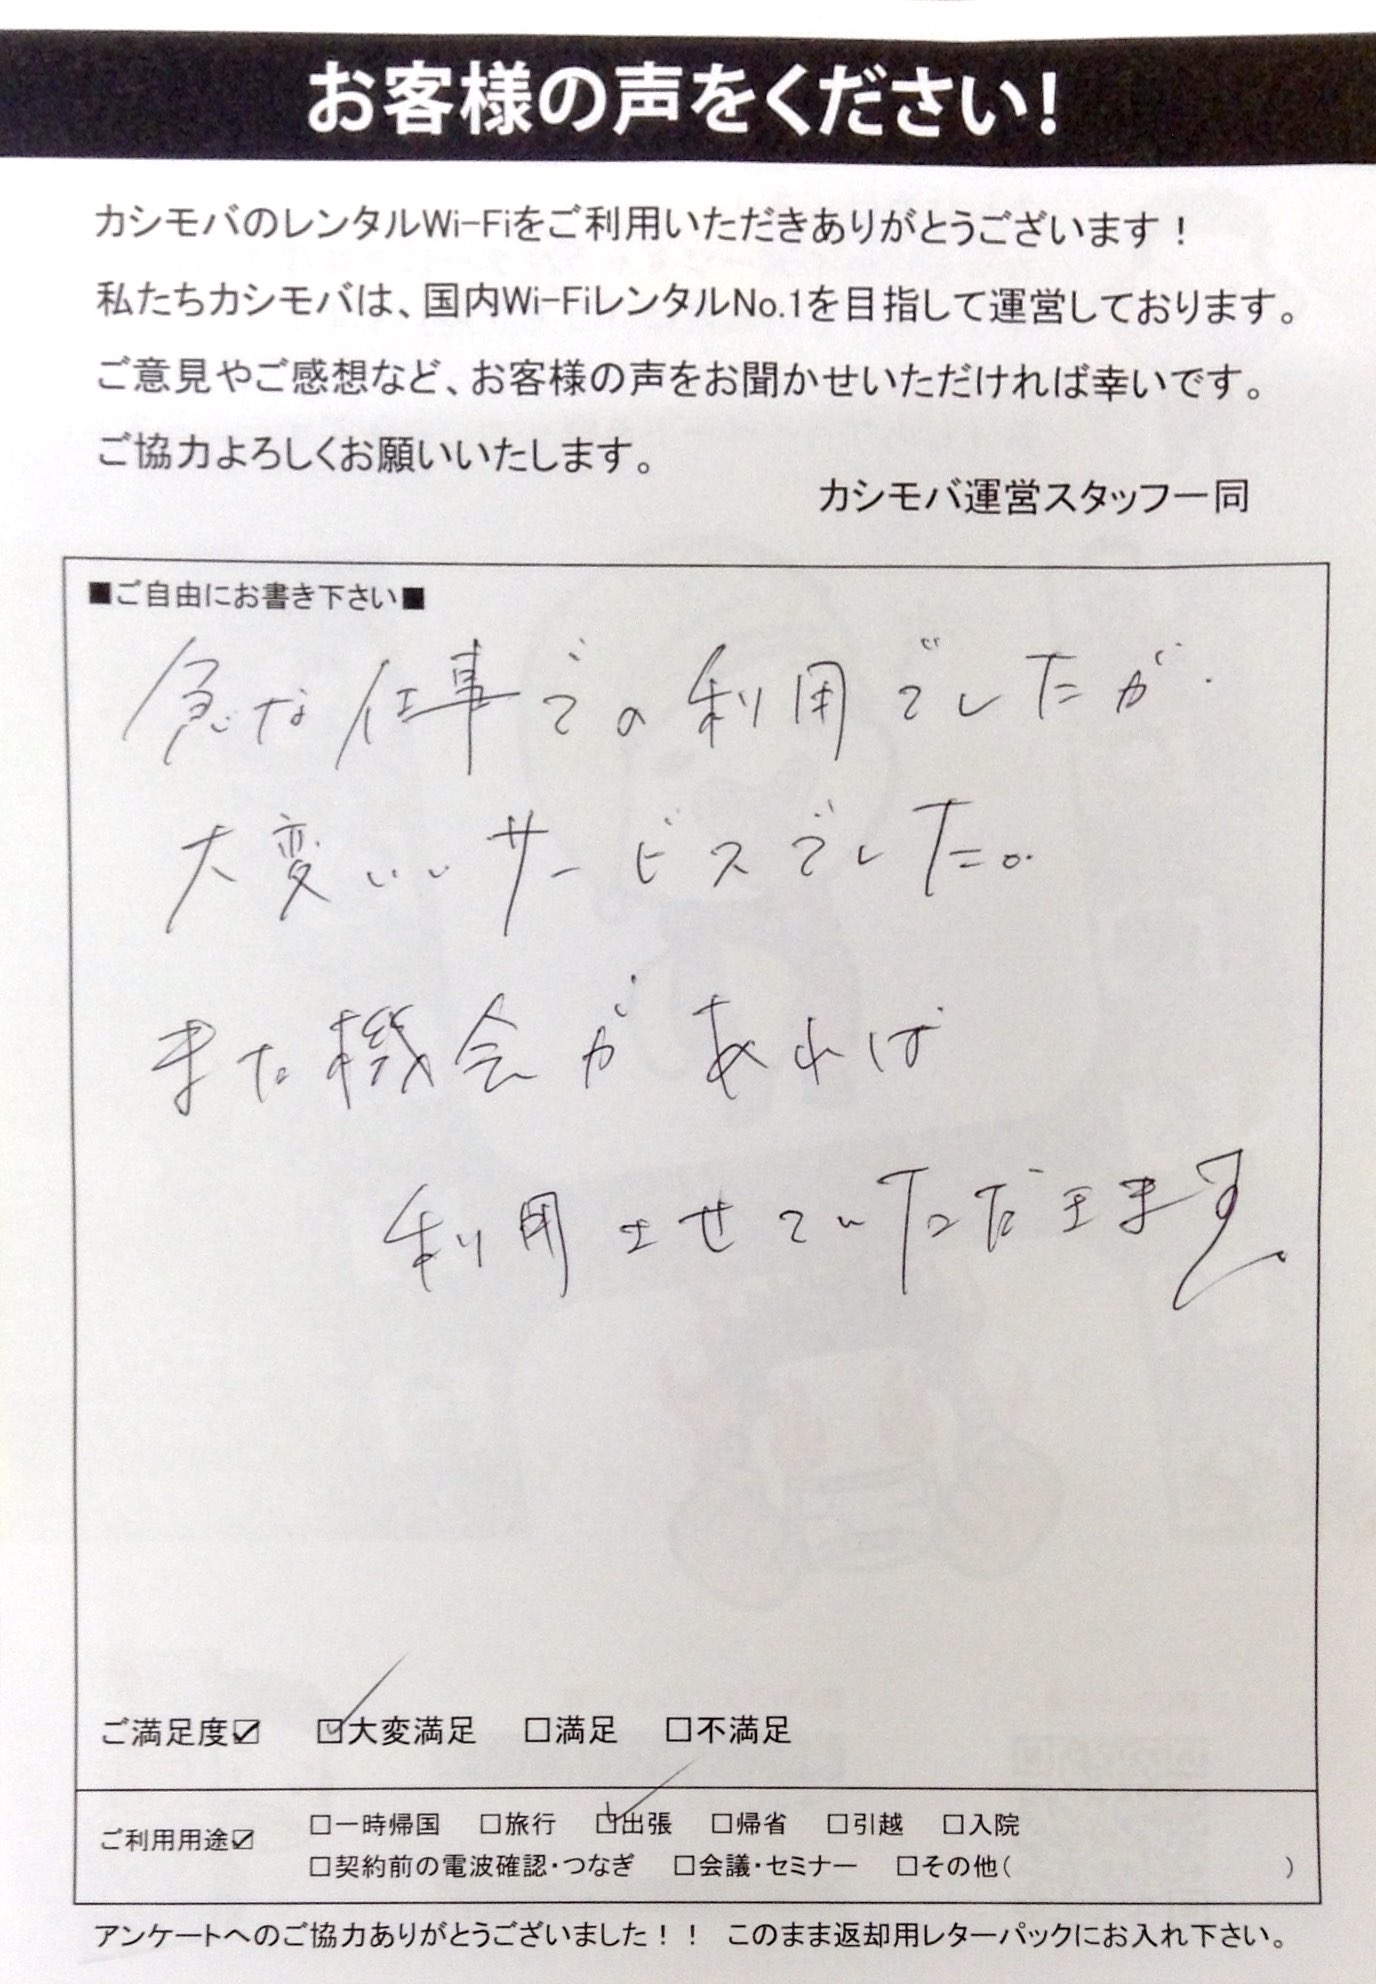 お客様の声をください!
カシモバのレンタルWi-Fiをご利用いただきありがとうございます！
私たちカシモバは、国内Wi-FiレンタルNo.1を目指して運営しております。
ご意見やご感想など、お客様の声をお聞かせいただければ幸いです。
ご協力よろしくお願いいたします。
カシモバ運営スタッフ一同
■ご自由にお書き下さい■
急な仕事での利用でしたが、
大変いいサービスでした。
また機会があれば
利用させていただきます。
ご満足度☑ ☑大変満足 □満足 □不満足
ご利用用途☑ □一時帰国 □旅行 ☑出張 □帰省 □引越 □入院
□契約前の電波確認・つなぎ □会議・セミナー □その他( )
アンケートへのご協力ありがとうございました！！ このまま返却用レターパックにお入れ下さい。